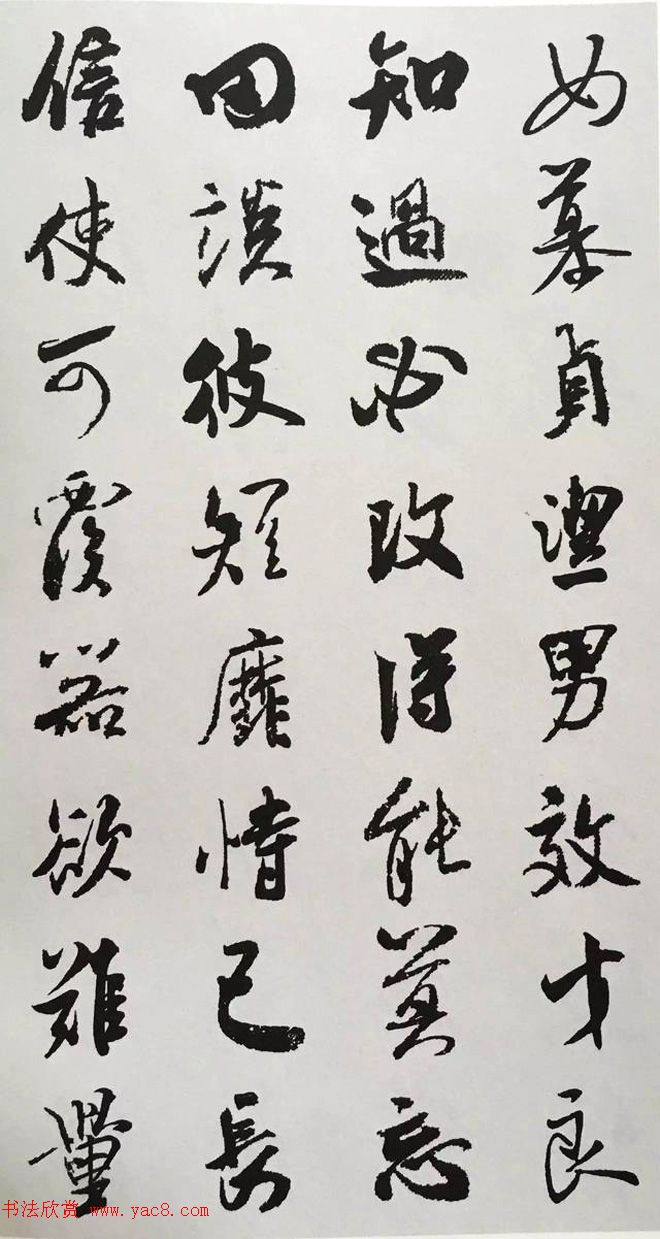 女慕貞潔男效才良
知過必改得能莫忘
罔談彼短靡恃己長
信使可覆器欲難量
书法欣赏 www.yac8.com